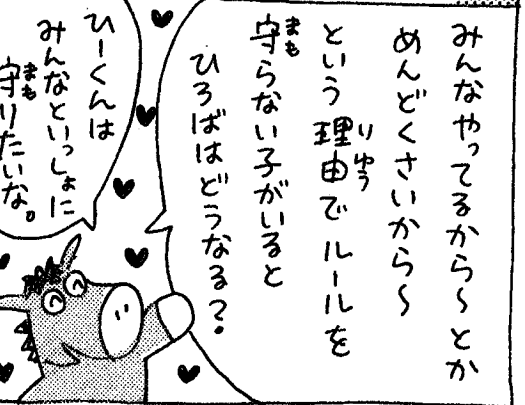 みんなやってるから〜とか
めんどくさいから〜
という理由でルールを
守らない子がいると
ひろばはどうなる?
ひーくんは
みんなといっしょに
守りたいな。